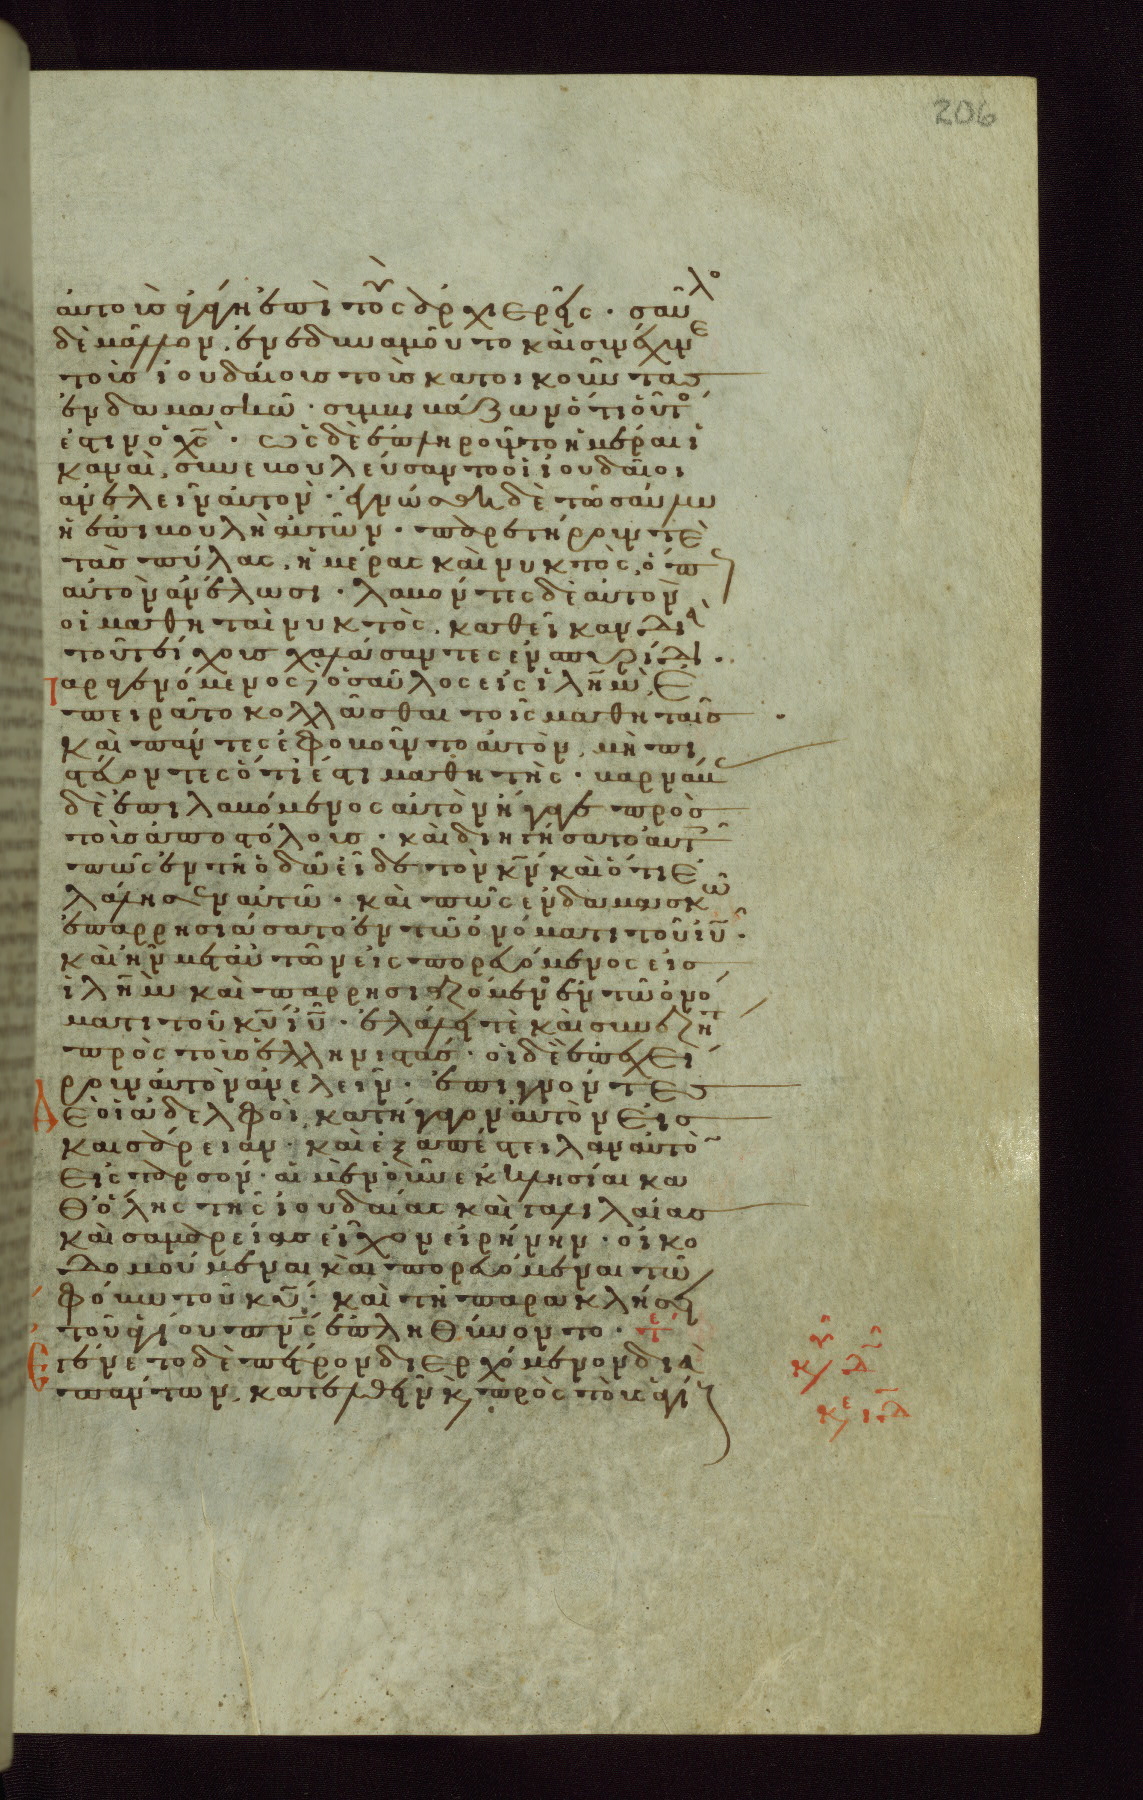 206
αὐτοὺς ἀγάγη ἐπὶ τοὺς ἀρχιερεῖς · σαῦλο
δὲ μᾶλλον ἐνεδυναμοῦτο καὶ συνέχυνε
τοὺς ἰουδαίους τοὺς κατοικοῦντας
ἐν δαμασκῶ · συμβιβάζων ὅτι οὗτό
ἐστιν ὁ χς · ὡς δὲ ἐπληροῦντο ἡμέραι ἱ
καναὶ, συνεβουλεύσαντο οἱ ἰουδαῖοι
ἀνελεῖν αὐτὸν · ἐγνώσθη δὲ τῶ σαύλω
ἡ ἐπιβουλὴ αὐτῶν · παρετήρουν τὲ
τὰς πύλας, ἡμέρας καὶ νυκτὸς, ὅπ
αὐτὸν ἀνέλωσι · λαβόντες δὲ αὐτὸν
οἱ μαθηταὶ νυκτὸς, καθεῖκαν διὰ
τοῦ τείχους χαλάσαντες ἐν σπυρίδι ·
παραγενόμενος δὲ ὁ σαῦλος εἰς ἱλημ, ἐ
πειρᾶτο κολλᾶσθαι τοῖς μαθηταῖς ·
καὶ πάντες ἐφοβοῦντο αὐτὸν, μὴ πι
στεύοντες ὅτι ἐστὶ μαθητής · βαρνάβας
δὲ ἐπιλαβόμενος αὐτὸν ἤγαγε πρὸς
τοὺς ἀποστόλους · καὶ διηγήσατο αὐτ
πῶς ἐν τῆ ὁδῶ εἶδε τὸν κν καὶ ὅτι ἐ
λάλησεν αὐτῶ · καὶ πῶς ἐν δαμασκῶ
ἐπαρρησιάσατο ἐν τῶ ὀνόματι τοῦ ιυ ·
καὶ ἦν μετ' αὐτῶν εἰσπορευόμενος εἰς
ἱλημ καὶ παρρησιαζόμενο ἐν τῶ ὀνό
ματι τοῦ κυ ιυ · ἐλάλει τὲ καὶ συνεζήτ
πρὸς τοὺς ἑλληνιστάς · οἱ δὲ ἐπεχεί
ρουν αὐτὸν ἀνελεῖν · ἐπιγνόντες
δὲ οἱ ἀδελφοὶ, κατήγαγον αὐτὸν εἰς
καισάρειαν · καὶ ἐξαπέστειλαν αὐτὸ
εἰς ταρσόν · αἱ μὲν οὖν ἐκκλησίαι κα
θ' ὅλης τῆς ἰουδαίας καὶ γαλιλαίας
καὶ σαμαρείας εἶχον εἰρήνην · οἰκο
δομούμεναι καὶ πορευόμεναι τῶ
φόβω τοῦ κυ · καὶ τῆ παρακλήσει
τοῦ ἁγίου πνς ἐπληθύνοντο · τε
ἐγένετο δὲ πέτρον διερχόμενον διὰ
πάντων, κατελθεῖν κ πρὸς τοὺς ἁγί